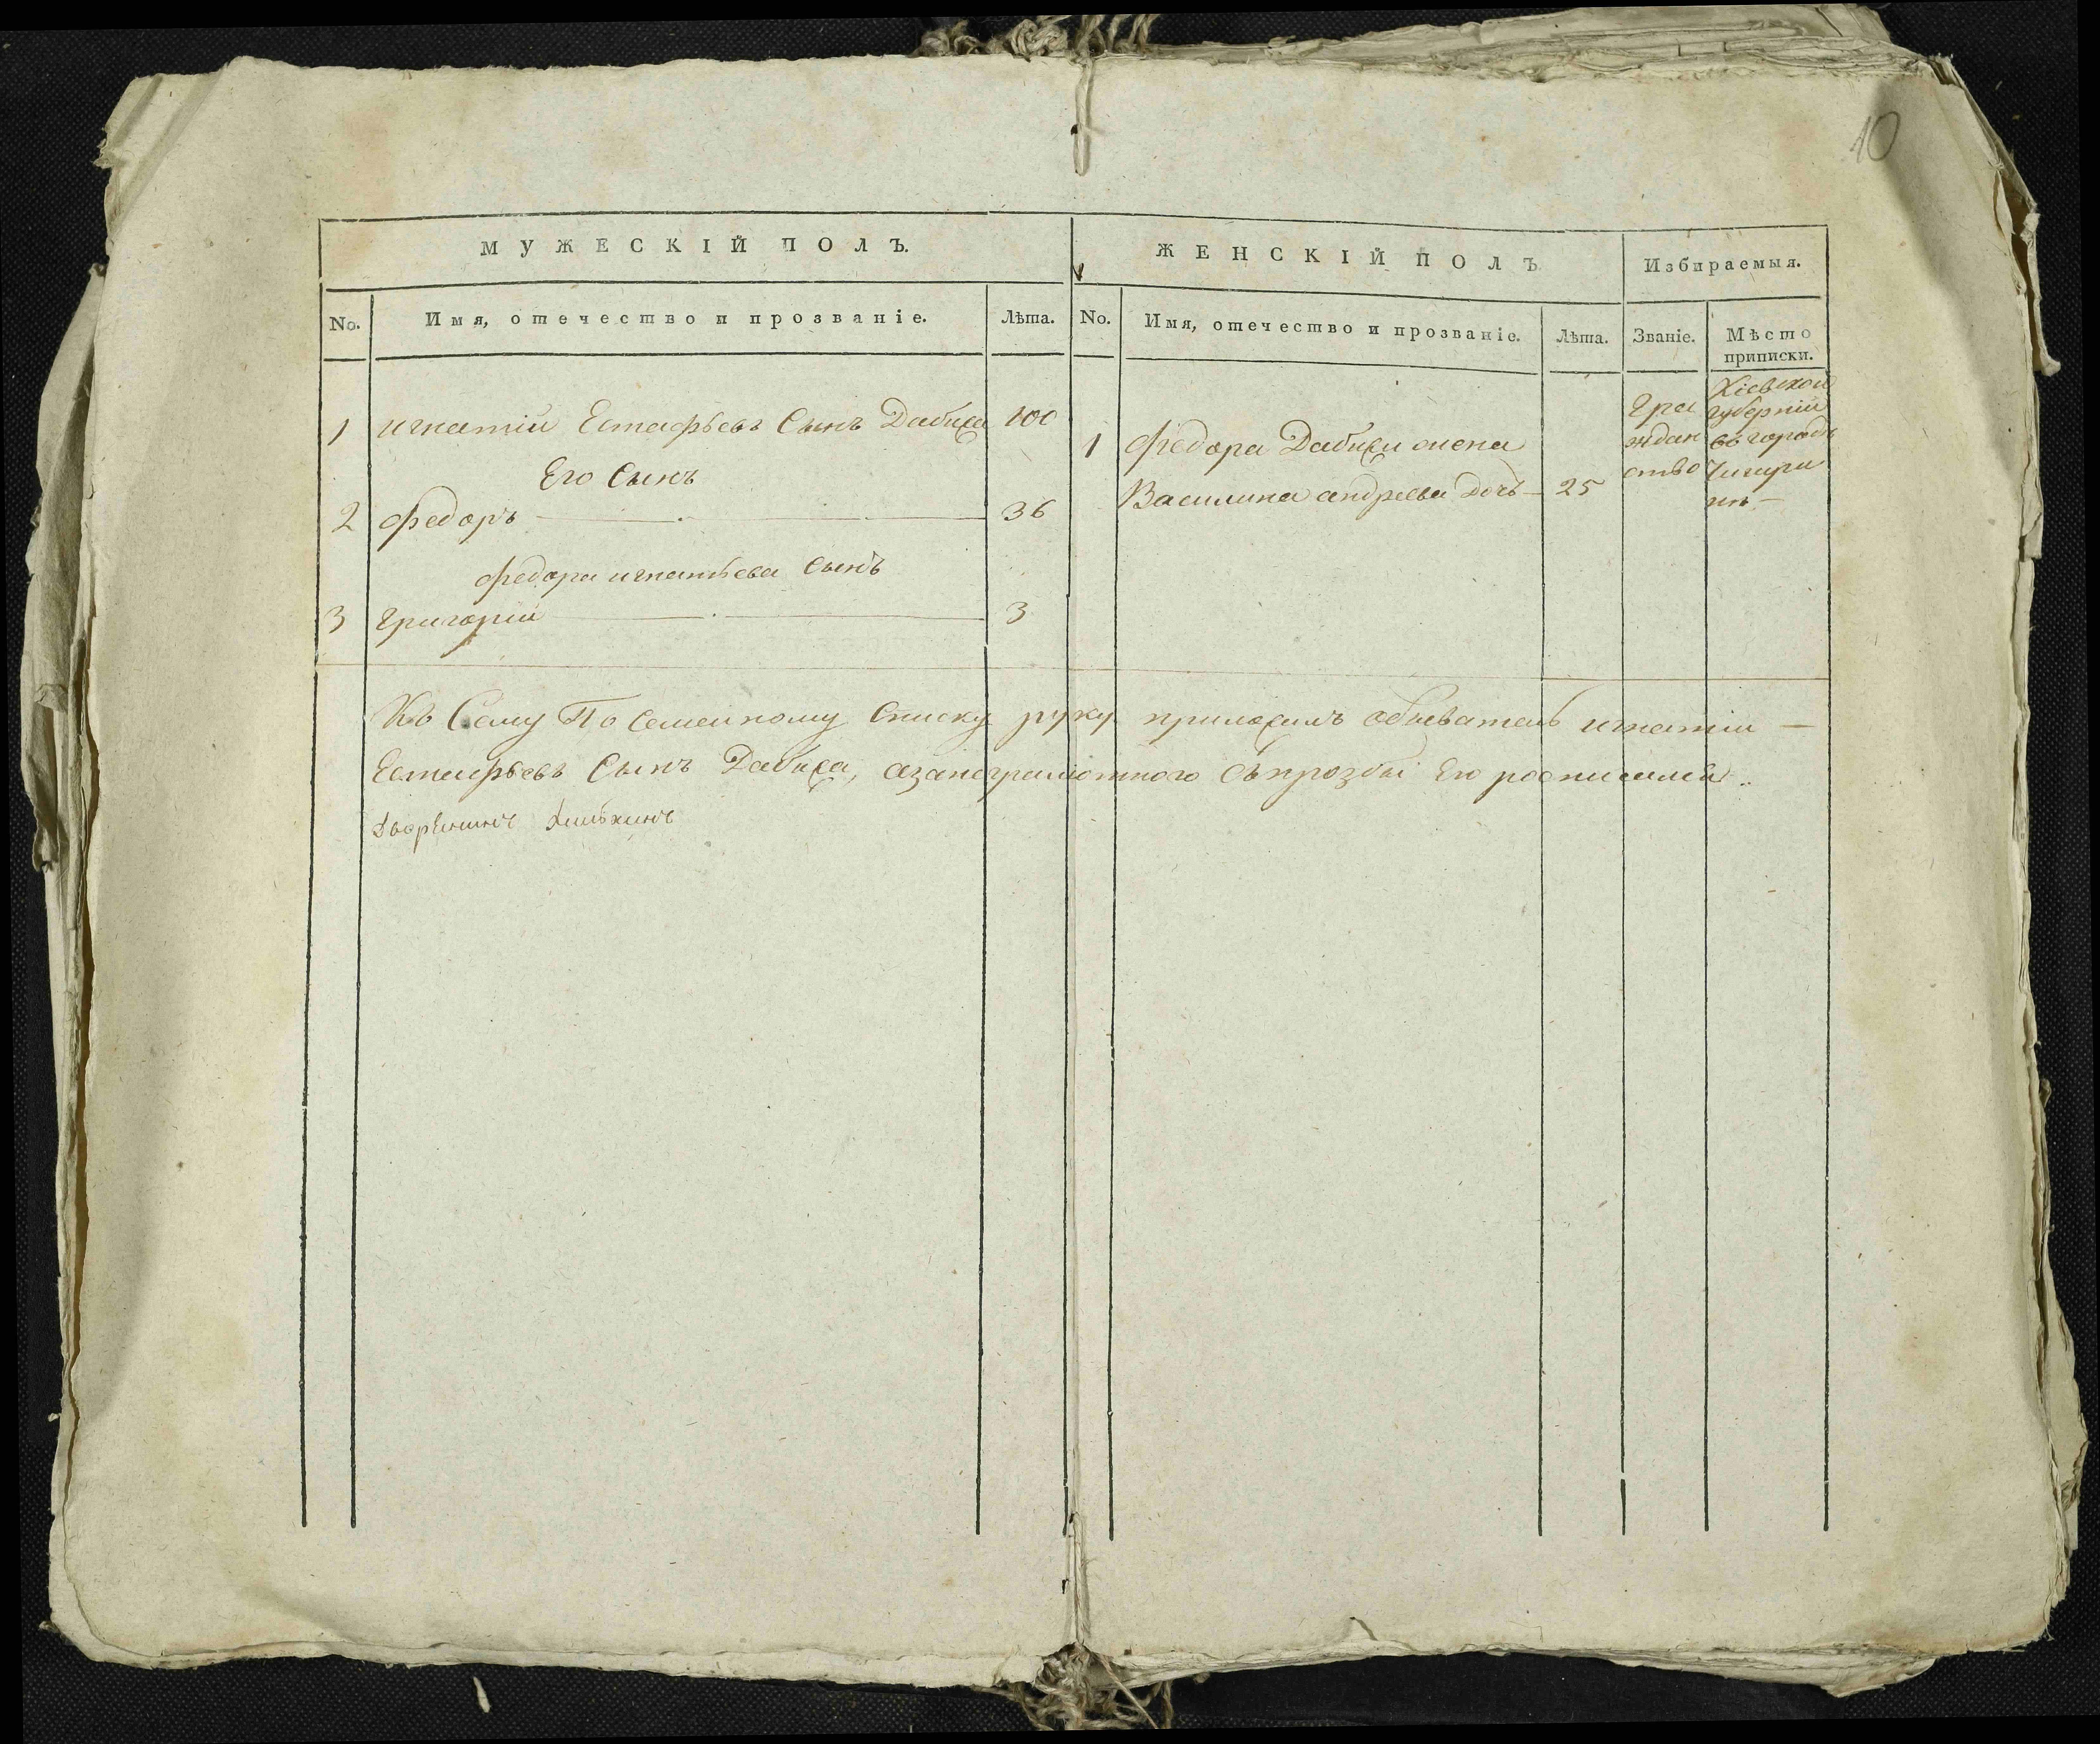 10
МУЖЕСКІЙ ПОЛЪ.
ЖЕНСКІЙ ПОЛЪ
Избираемыя.
No.
Имя, отечество и прозваніе.
Лѣта.
No.
Имя, отечество и прозваніе.
Лѣта.
Званіе.
Мѣсто
приписки.
1 игнатіи Естафьевъ Сынъ Дабижа 100
Его Сынъ
2 федоръ 36
федора игнатьева сынъ
3 григоріи 3
1 федора Дабижи жена
Василина андреева дочь 25
гра
ждан
ство
Кіевской
губерніи
въ городѣ
Чигири
нѣ
Къ Сему По семейному Списку руку приложилъ обыватель игнатіи
Естафьевъ Сынъ Дабижа, азанеграмотного Съпрозбы Его росписался
дворенинъ